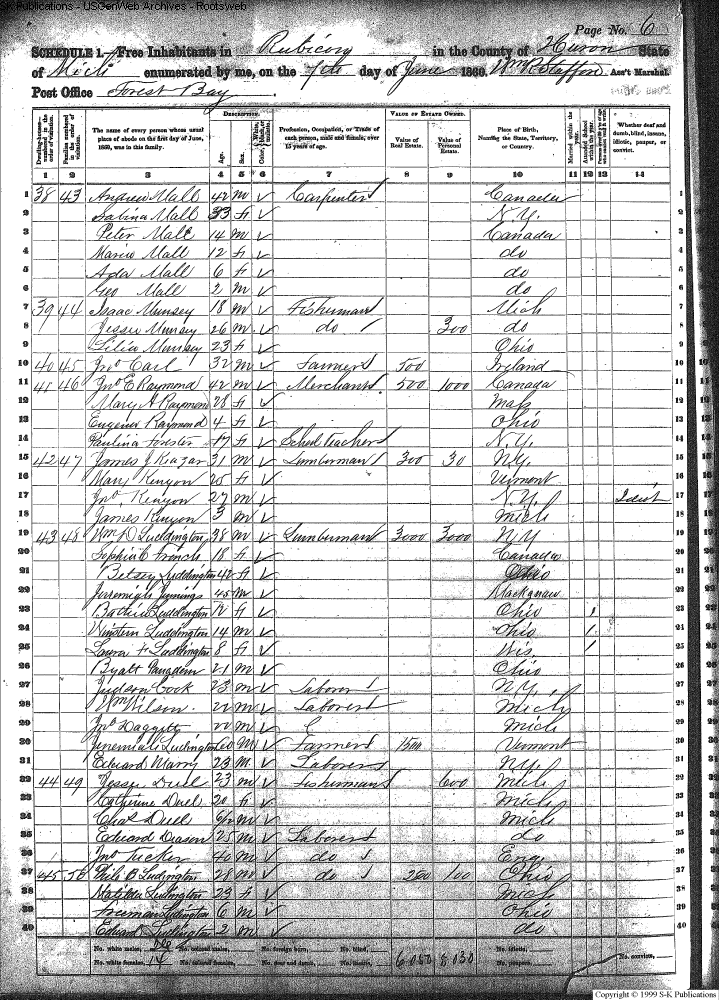 S-K Publications - USGenWeb Archives - Rootsweb
Page No. 6
SCHEDULE 1.—Free Inhabitants in Rubicon in the County of Huron State
of Mich enumerated by me, on the 7th day of June 1860. Wm R Stafford Ass't Marshal.
Post Office Forest Bay
DESCRIPTION. VALUE OF ESTATE OWNED.
Dwelling-houses—numbered in the order of visitation. Families numbered in the order of visitation. The name of every person whose usual place of abode on the first day of June, 1860, was in this family. Age. Sex. Color, White, black, or mulatto. Profession, Occupation, or Trade of each person, male and female, over 15 years of age. Value of Real Estate. Value of Personal Estate. Place of Birth, Naming the State, Territory, or Country. Married within the year. Attended School within the year. Whether deaf and dumb, blind, insane, idiotic, pauper, or convict.
1 2 3 4 5 6 7 8 9 10 11 12 13 14
1 38 43 Andrew Mall 42 m ✓ Carpenter Canada 1
2 Sabina Mall 33 f ✓ N.Y. 2
3 Peter Mall 14 m ✓ Canada 3
4 Maria Mall 12 f ✓ do 4
5 Ada Mall 6 f ✓ do 5
6 Geo Mall 2 m ✓ do 6
7 39 44 Isaac Munsey 18 m ✓ Fisherman Mich 7
8 Jessie Munsey 26 m ✓ do 300 do 8
9 Munsey 23 f ✓ Ohio 9
10 40 45 Jno Carl 32 m ✓ Farmer 500 Ireland 10
11 41 46 Jno E Raymond 42 m ✓ Merchant 500 1000 Canada 11
12 Mary A Raymond 28 f ✓ Mass 12
13 Eugenie Raymond 4 f ✓ Ohio 13
14 Paulina Forester 17 f ✓ School teacher N.Y. 14
15 42 47 James J 31 m ✓ Lumberman 300 30 N.Y. 15
16 Mary Kenyon 25 f ✓ Vermont 16
17 Jno Kenyon 27 m ✓ N.Y. Idiot 17
18 James Kenyon 3 m ✓ Mich 18
19 43 48 Wm D Luddington 38 m ✓ Lumberman 3000 3000 N.Y 19
20 Sophia C French 18 f ✓ Canada 20
21 Betsey Luddington 42 f ✓ Ohio 21
22 Jeremiah Jennings 45 m ✓ Mackanaw 22
23 Luddington 12 f ✓ Ohio 1 23
24 Luddington 14 m ✓ Ohio 1 24
25 Laura F Luddington 8 f ✓ Wis. 1 25
26 21 m ✓ Ohio 26
27 Judson Cook 23 m ✓ Laborer N.Y. 27
28 Wm Wilson 22 m ✓ Laborer Mich 28
29 Jno Daggett 22 m ✓ Mich 29
30 Jeremiah Ludington 60 m ✓ Farmer 1500 Vermont 30
31 Edward 23 m ✓ Laborer N.Y. 31
32 44 49 Jesse Duel 23 m ✓ Fisherman 600 Mich 32
33 Catherine Duel 20 f ✓ Mich 33
34 Chas Duell 6/12 m ✓ Mich 34
35 Edward Deason 25 m ✓ Laborer do 35
36 Jno Tucker 40 m ✓ do Eng. 36
37 45 50 Phil B Ludington 28 m ✓ do 250 100 Ohio 37
38 Matilda Ludington 23 f ✓ Mich 38
39 Freeman Ludington 6 m ✓ Ohio 39
40 Edward Ludington 2 m ✓ do 40
No. white males, No. colored males, No. foreign born, No. blind, 6050 8030 No. idiotic, No. convicts,
No. white females, 14 No. colored females, No. deaf and dumb, No. insane, No. paupers,
Copyright © 1999 S-K Publications